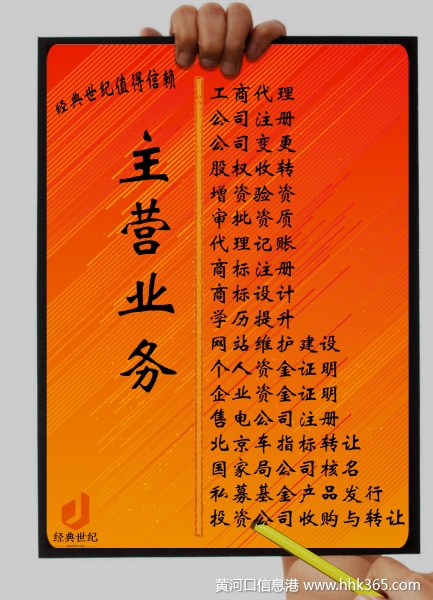 经典世纪值得信赖
主营业务
工商代理
公司注册
公司变更
股权收转
增资验资
审批资质
代理记账
商标注册
商标设计
学历提升
网站维护建设
个人资金证明
企业资金证明
售电公司注册
北京车指标转让
国家局公司核名
私募基金产品发行
投资公司收购与转让
经典世纪
黄河口信息港 www.hhk365.com